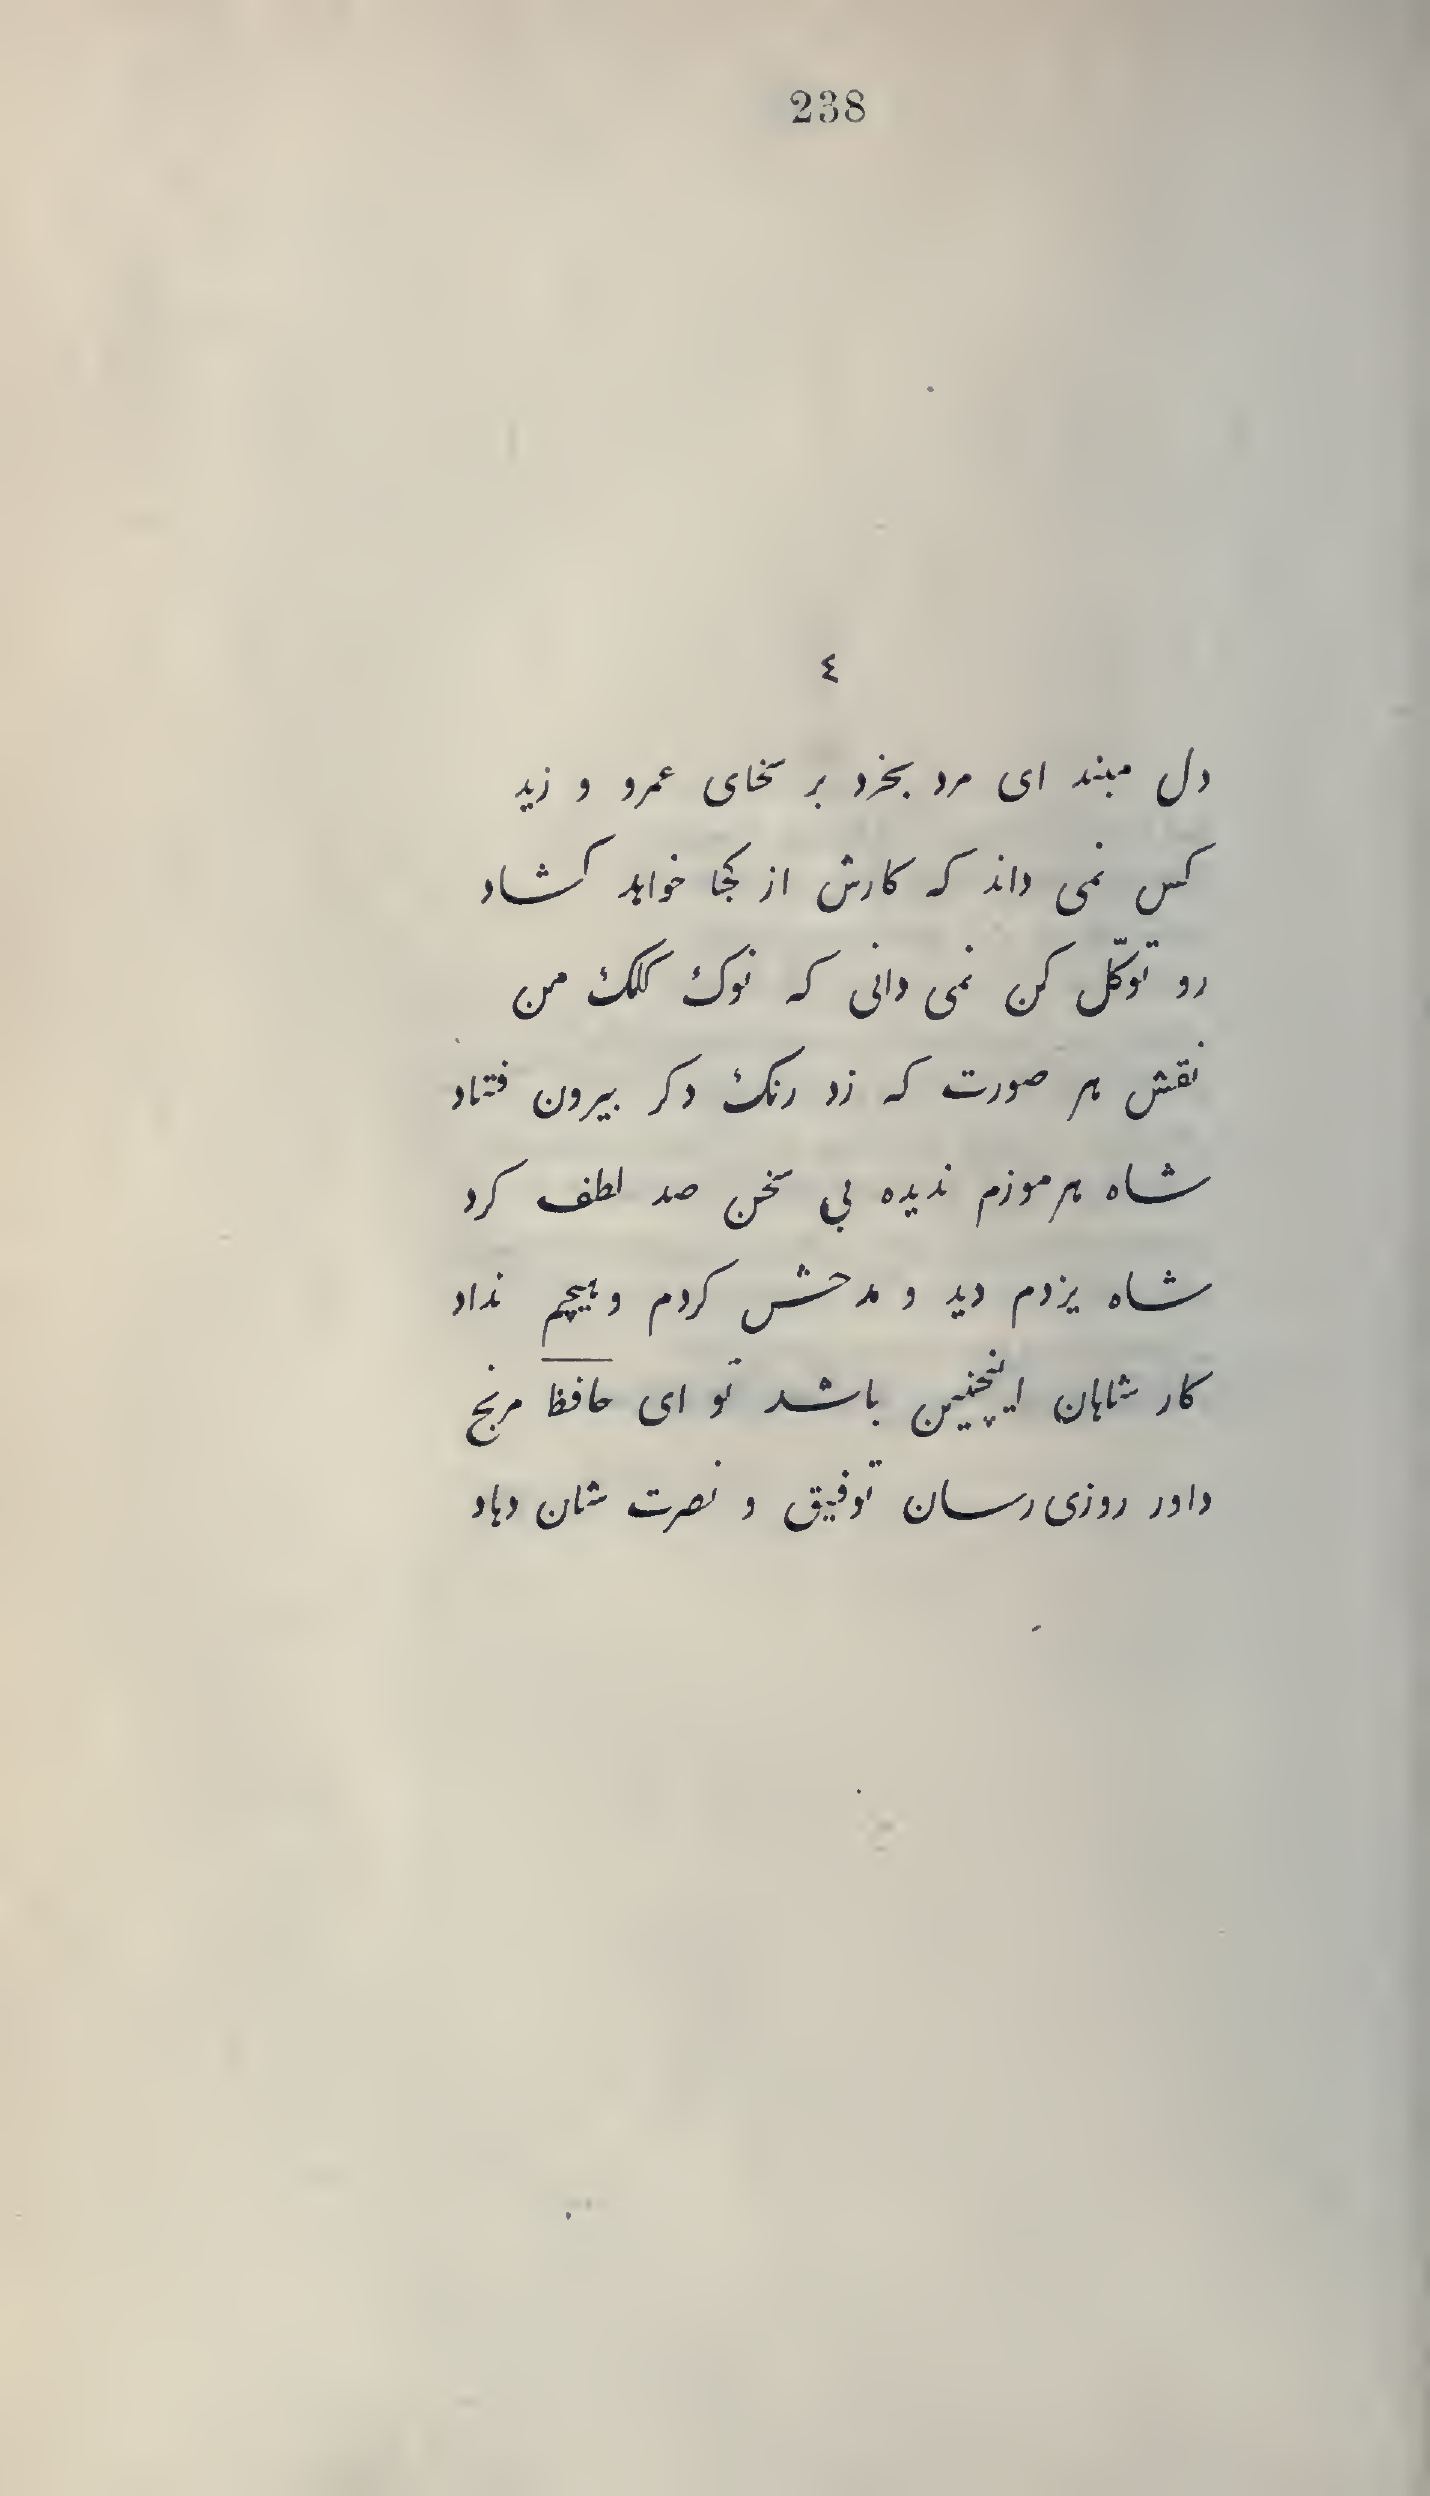 238
٤
دل مبند ای مرد بخرد بر سخای عمرو و زید
کس نمی داند که کارش از کجا خواهد کشاد
رو توکّل کن نمی دانی که نوک کلک من
نقش هر صورت که زد رنک دکر بیرون فتاد
شاه هرموزم ندیده بی سخن صد لطف کرد
شاه یزدم دید و مدحش کردم و هیچم نداد
کار شاهان اینچنین باشد تو ای حافظ مرنج
داور روزی رسان توفیق و نصرت شان دهاد